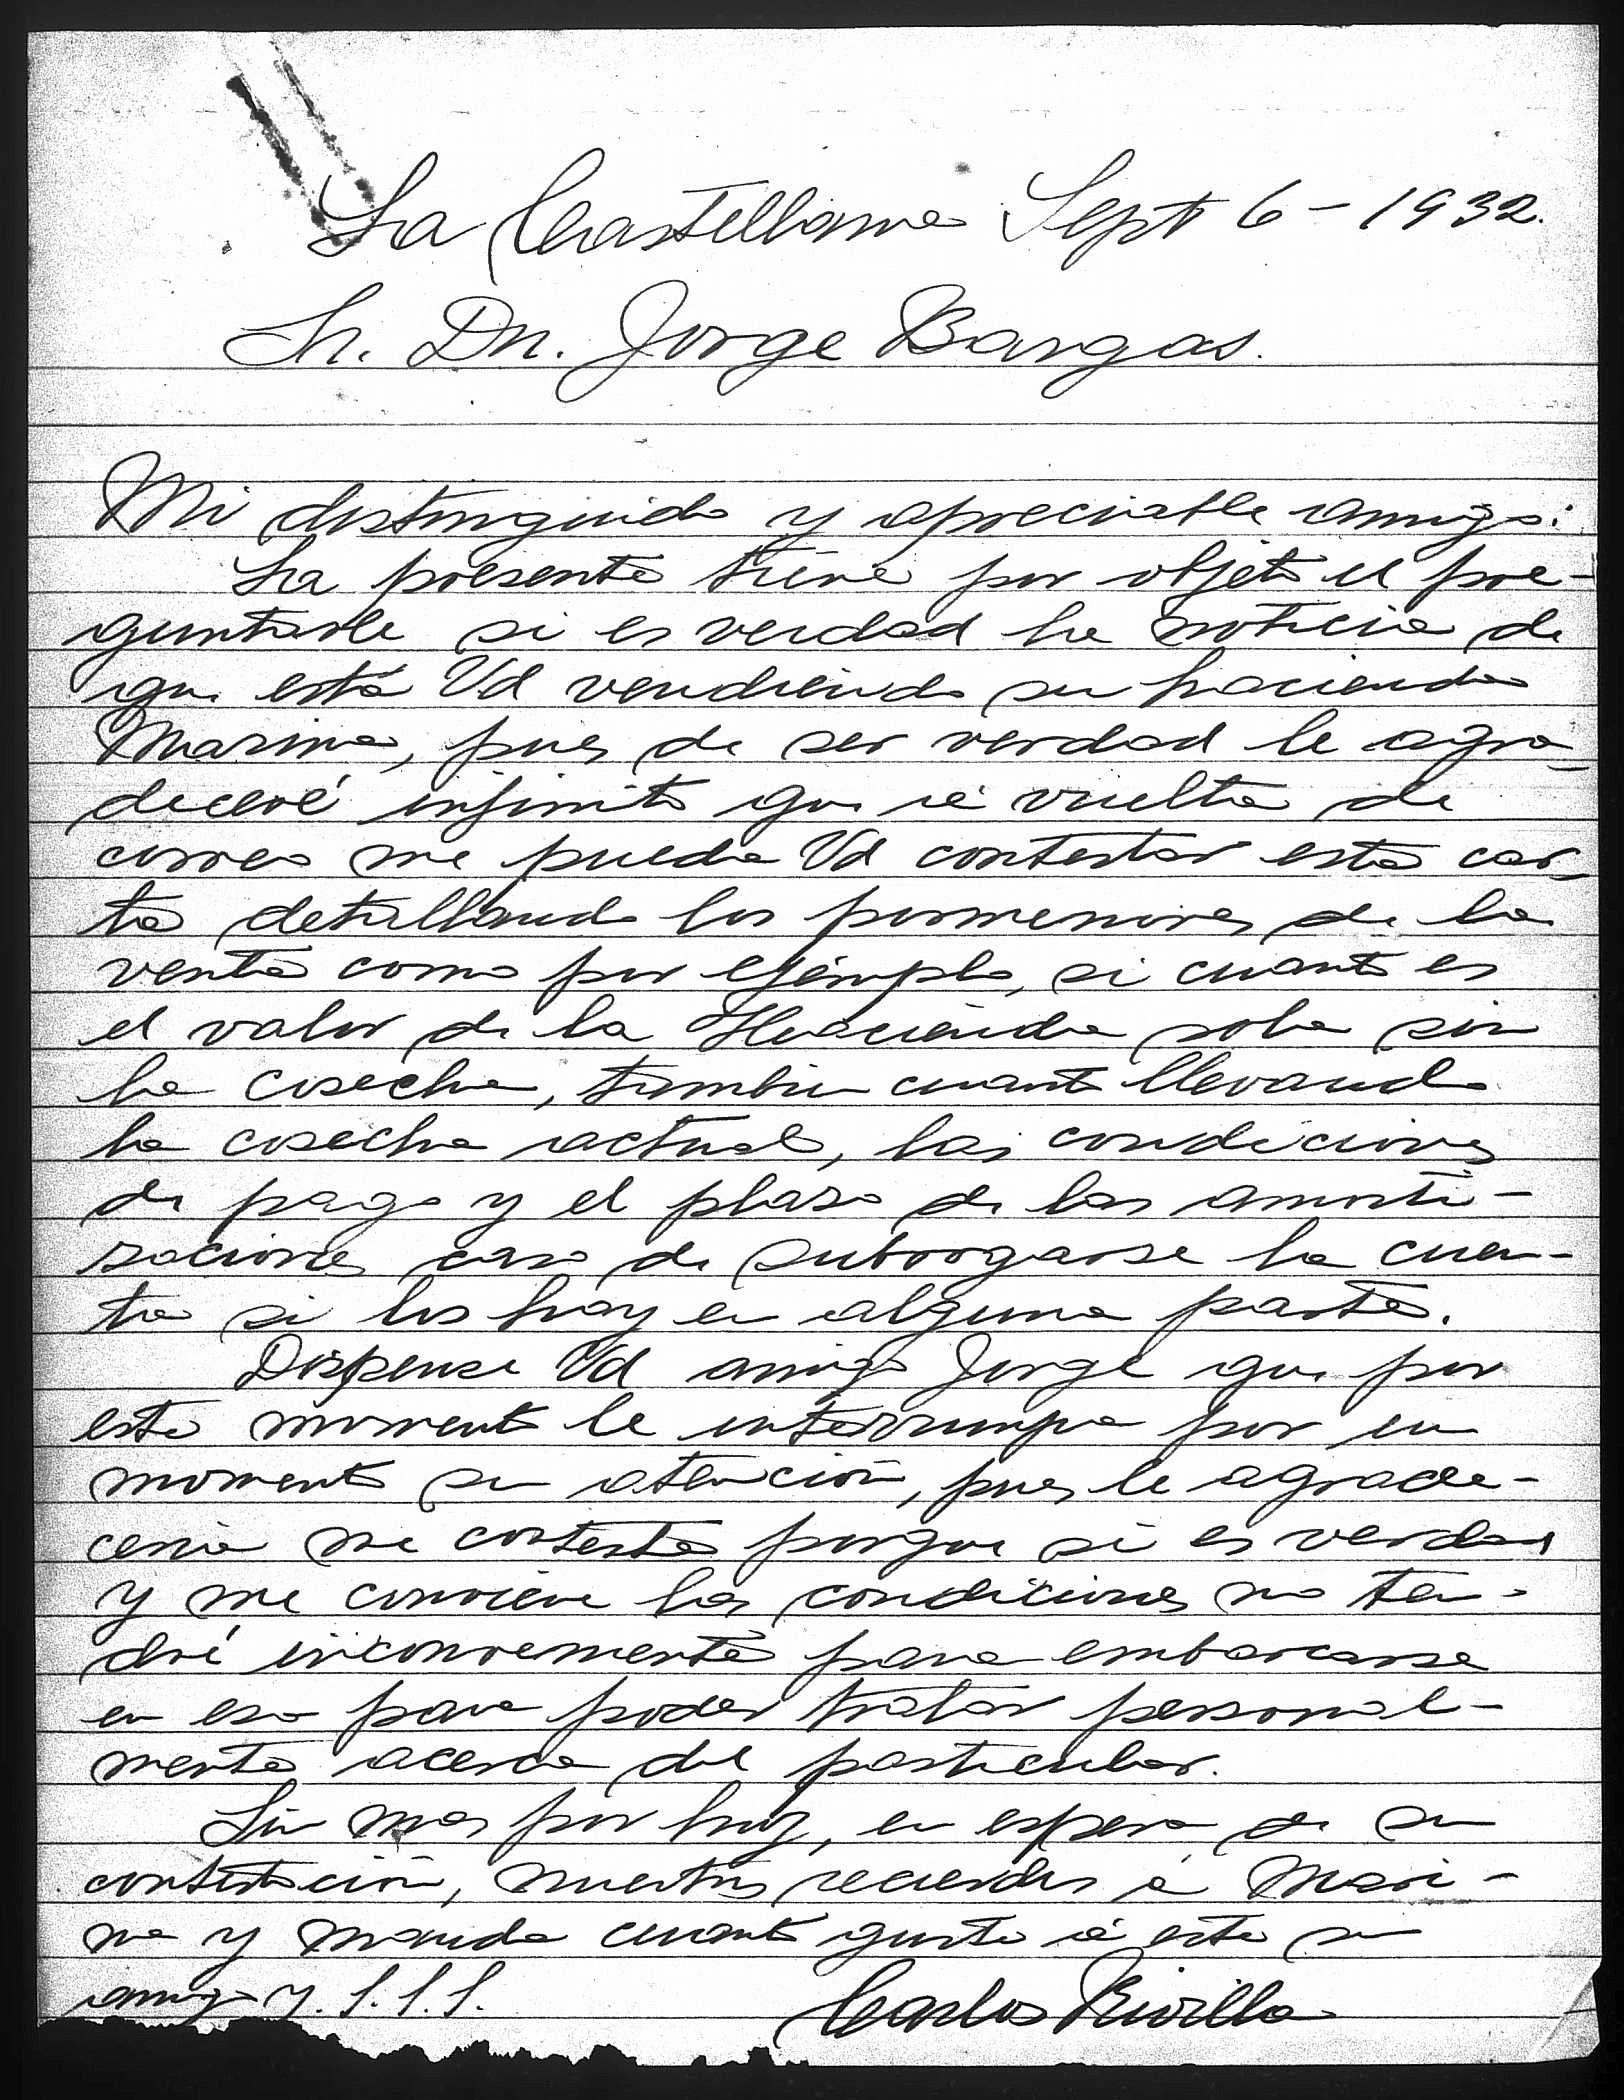 La Castellana Sept 6 - 1932.
Sr. Dn. Jorge Bargas.
Mi distinguido y apreciable amigo:
La presente tiene por objeto el pre-
guntarle si es verdad la noticia de
que está Vd vendiendo su hacienda
Marina, pues de ser verdad le agra-
deceré infinito que á vuelta de
correo me pueda Vd contestar esta car-
ta detallando los pormenores de la
venta como por ejemplo, si cuanto es
el valor de la Hacienda sola sin
la cosecha, tambien cuanto llevando
la cosecha actual, las condiciones
de pago y el plaso de las amorti-
saciones caso de subrogarse la cuen-
ta si los hay en alguna parte.
Dispense Vd amigo Jorge que por
este momento le interrumpa por un
momento su atención, pues le agrade-
ceria me conteste porque si es verdad
y me conviene las condiciones no ten-
dré inconveniente para embarcarse
en esa para poder tratar personal-
mente acerca del particular.
Sin mas por hoy, en espera de su
contestación, nuestros recuerdos á Mari-
na y mande cuanto guste á este su
amigo y. S.S.S. Carlos